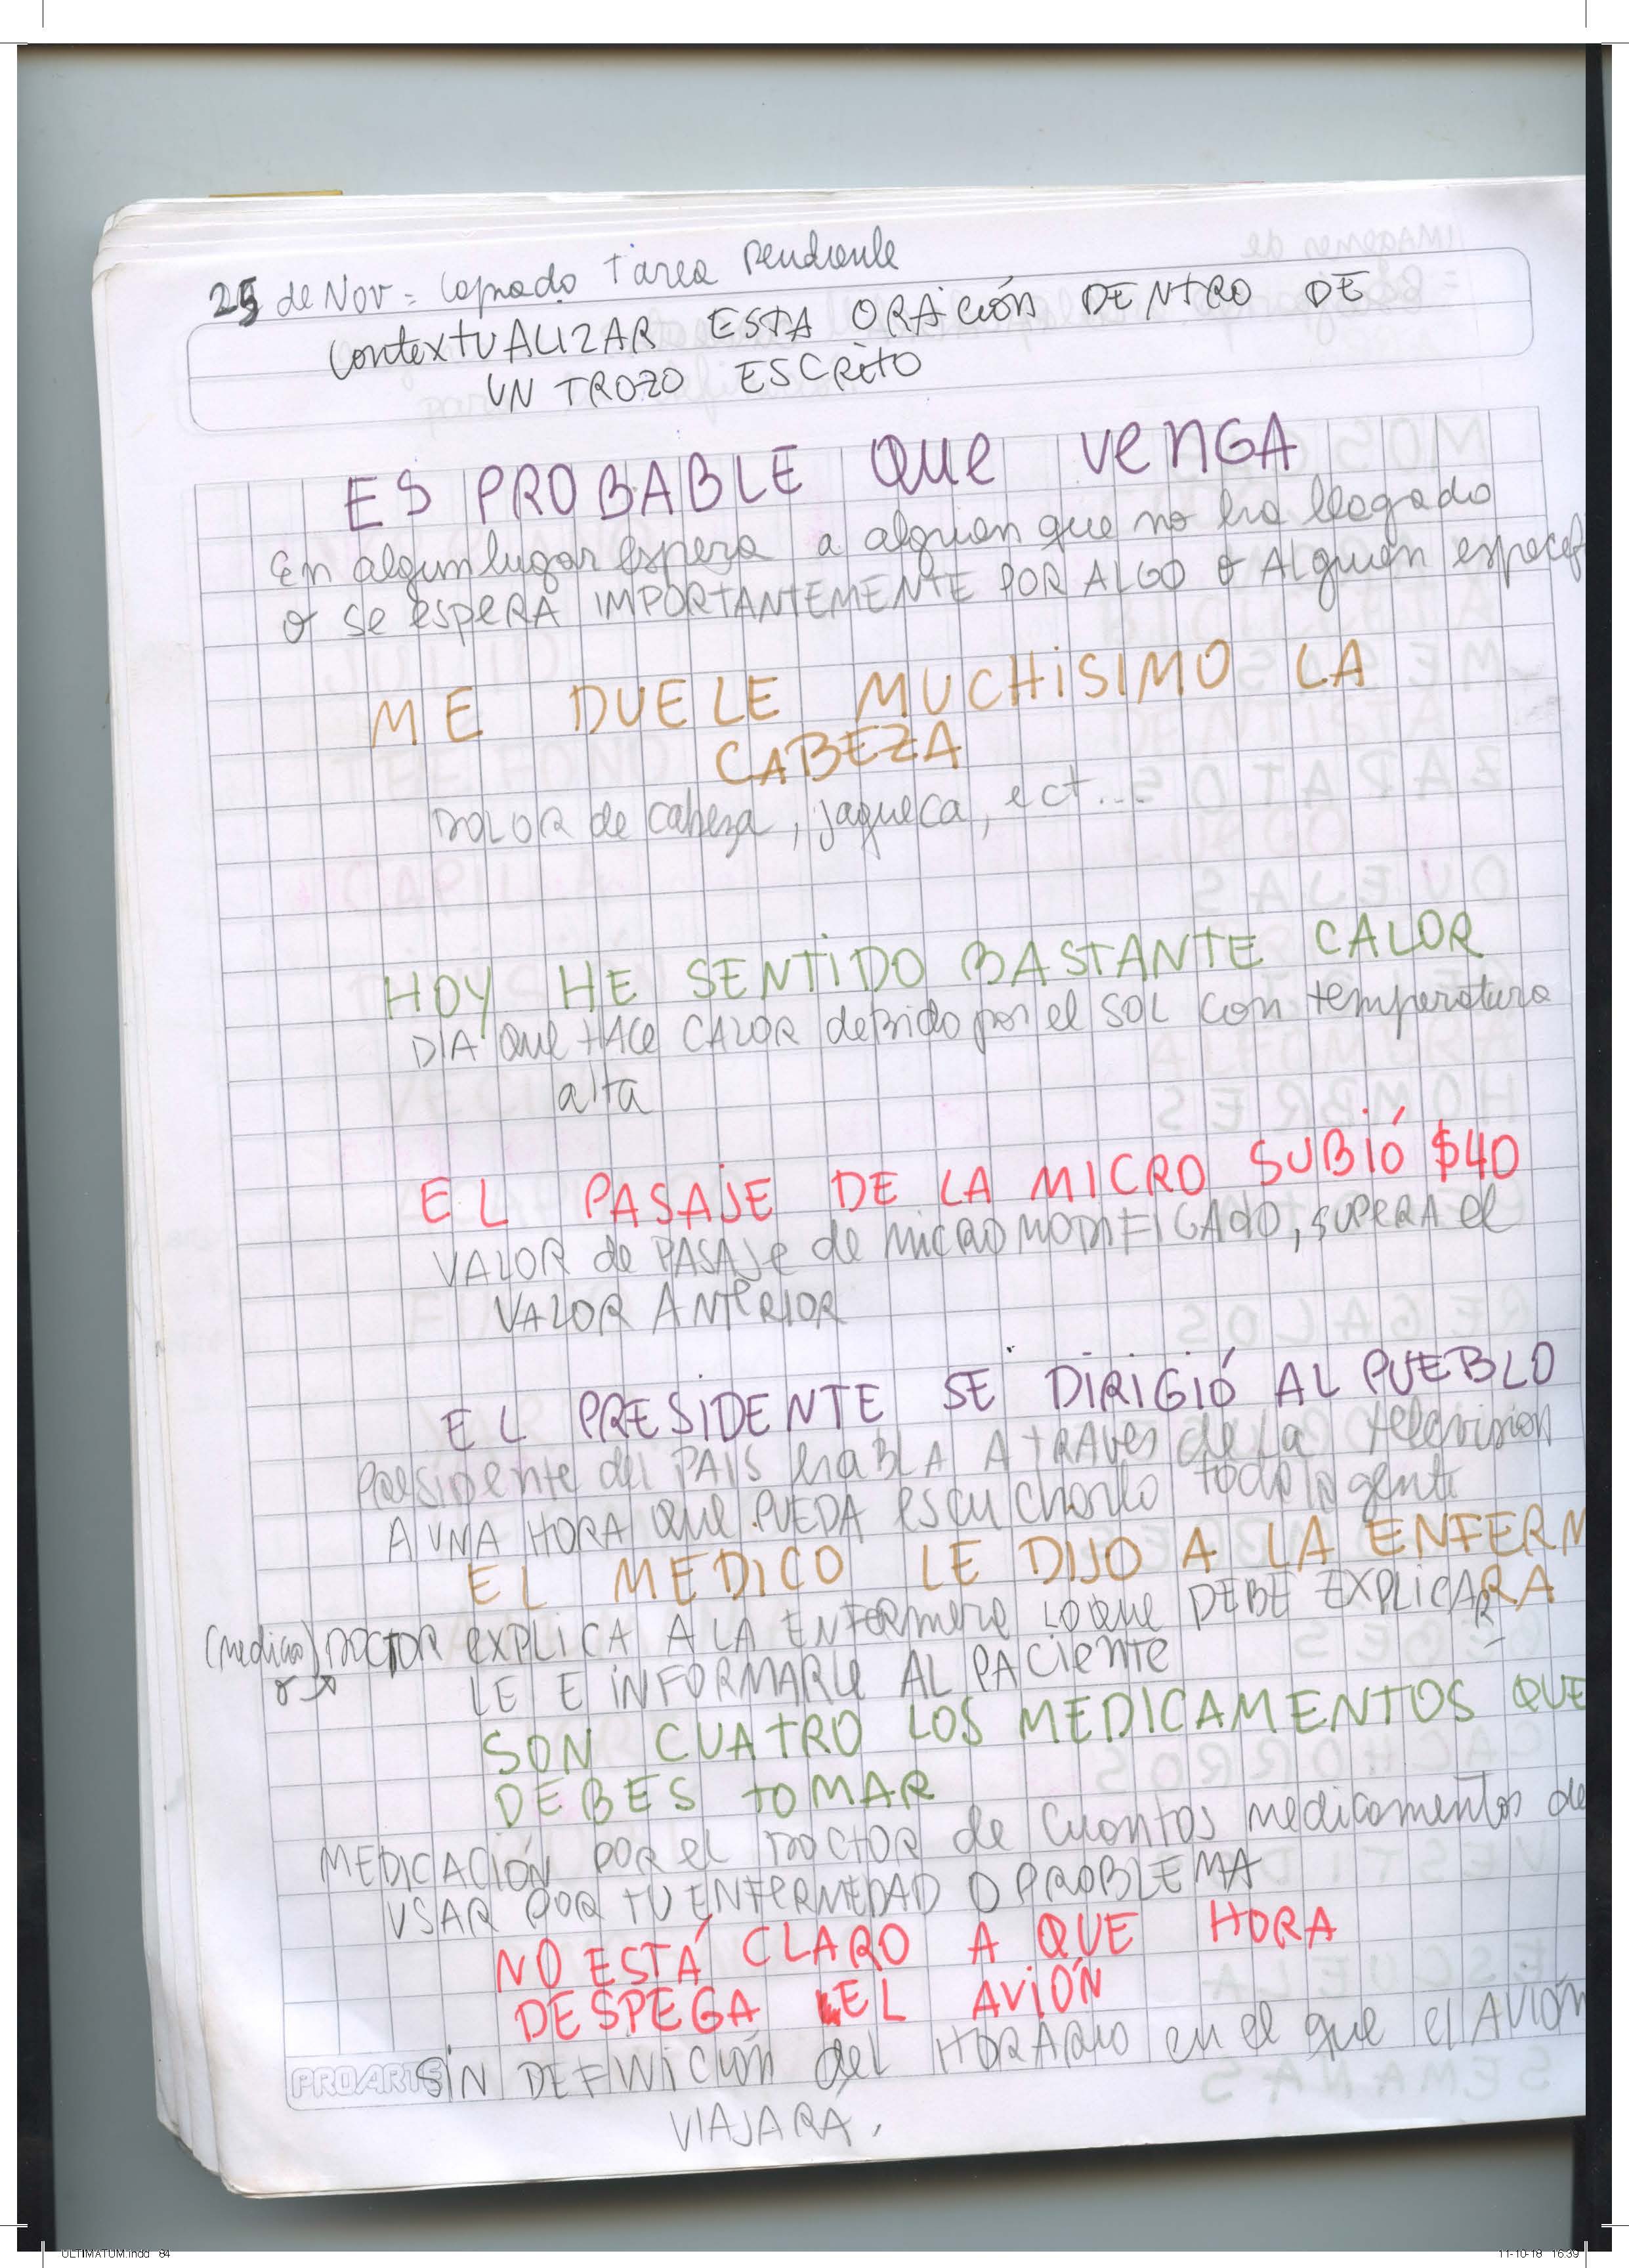 25 de Nov = Copiado tarea Pendiente
ContextUALIZAR ESTA ORACIÓN DENTRO DE
UN TROZO ESCRITO
ES PROBABLE QUE VENGA
En algun lugar espera a alguien que no ha llegado
o Se ESPERA IMPORTANTEMENTE POR ALGO o ALguien
ME DUELE MUCHISIMO LA
CABEZA
DOLOR de cabeza, jaqueca, ect...
HOY HE SENTIDO BASTANTE CALOR
DIA que HACe CALOR debido por el SOL con temperatura
alta
EL PASAJE DE LA MICRO SUBIÓ $40
VALOR de PASAJe de MICRO MODIFICADO, SUPERA el
VALOR ANTERIOR
EL PRESIDENTE SE DIRIGIÓ AL PUEBLO
Presidente del PAIS hABLA A TRAVES de La television
A UNA HORA que PUEDA escucharlo toda la gente
EL MEDICO LE DIJO A LA ENFERM
RA
(medico) DOCTOR EXPLICA A LA ENFERmera LO que DEBE EXPLICAR
o LE E INFORMARLE AL PACIENTE
SON CUATRO LOS MEDICAMENTOS QUE
DEBES TOMAR
MEDICACIÓN POR el DOCTOR de Cuantos medicamentos de
USAR POR TU ENFERMEDAD O PROBLEMA
NO ESTÁ CLARO A QUE HORA
DESPEGA EL AVIÓN
SIN DEFINICIÓN del HORARIO en el que el AVIÓN
VIAJARA.
PROARTE
ULTIMATUM.indd 84
11-10-18 16:39